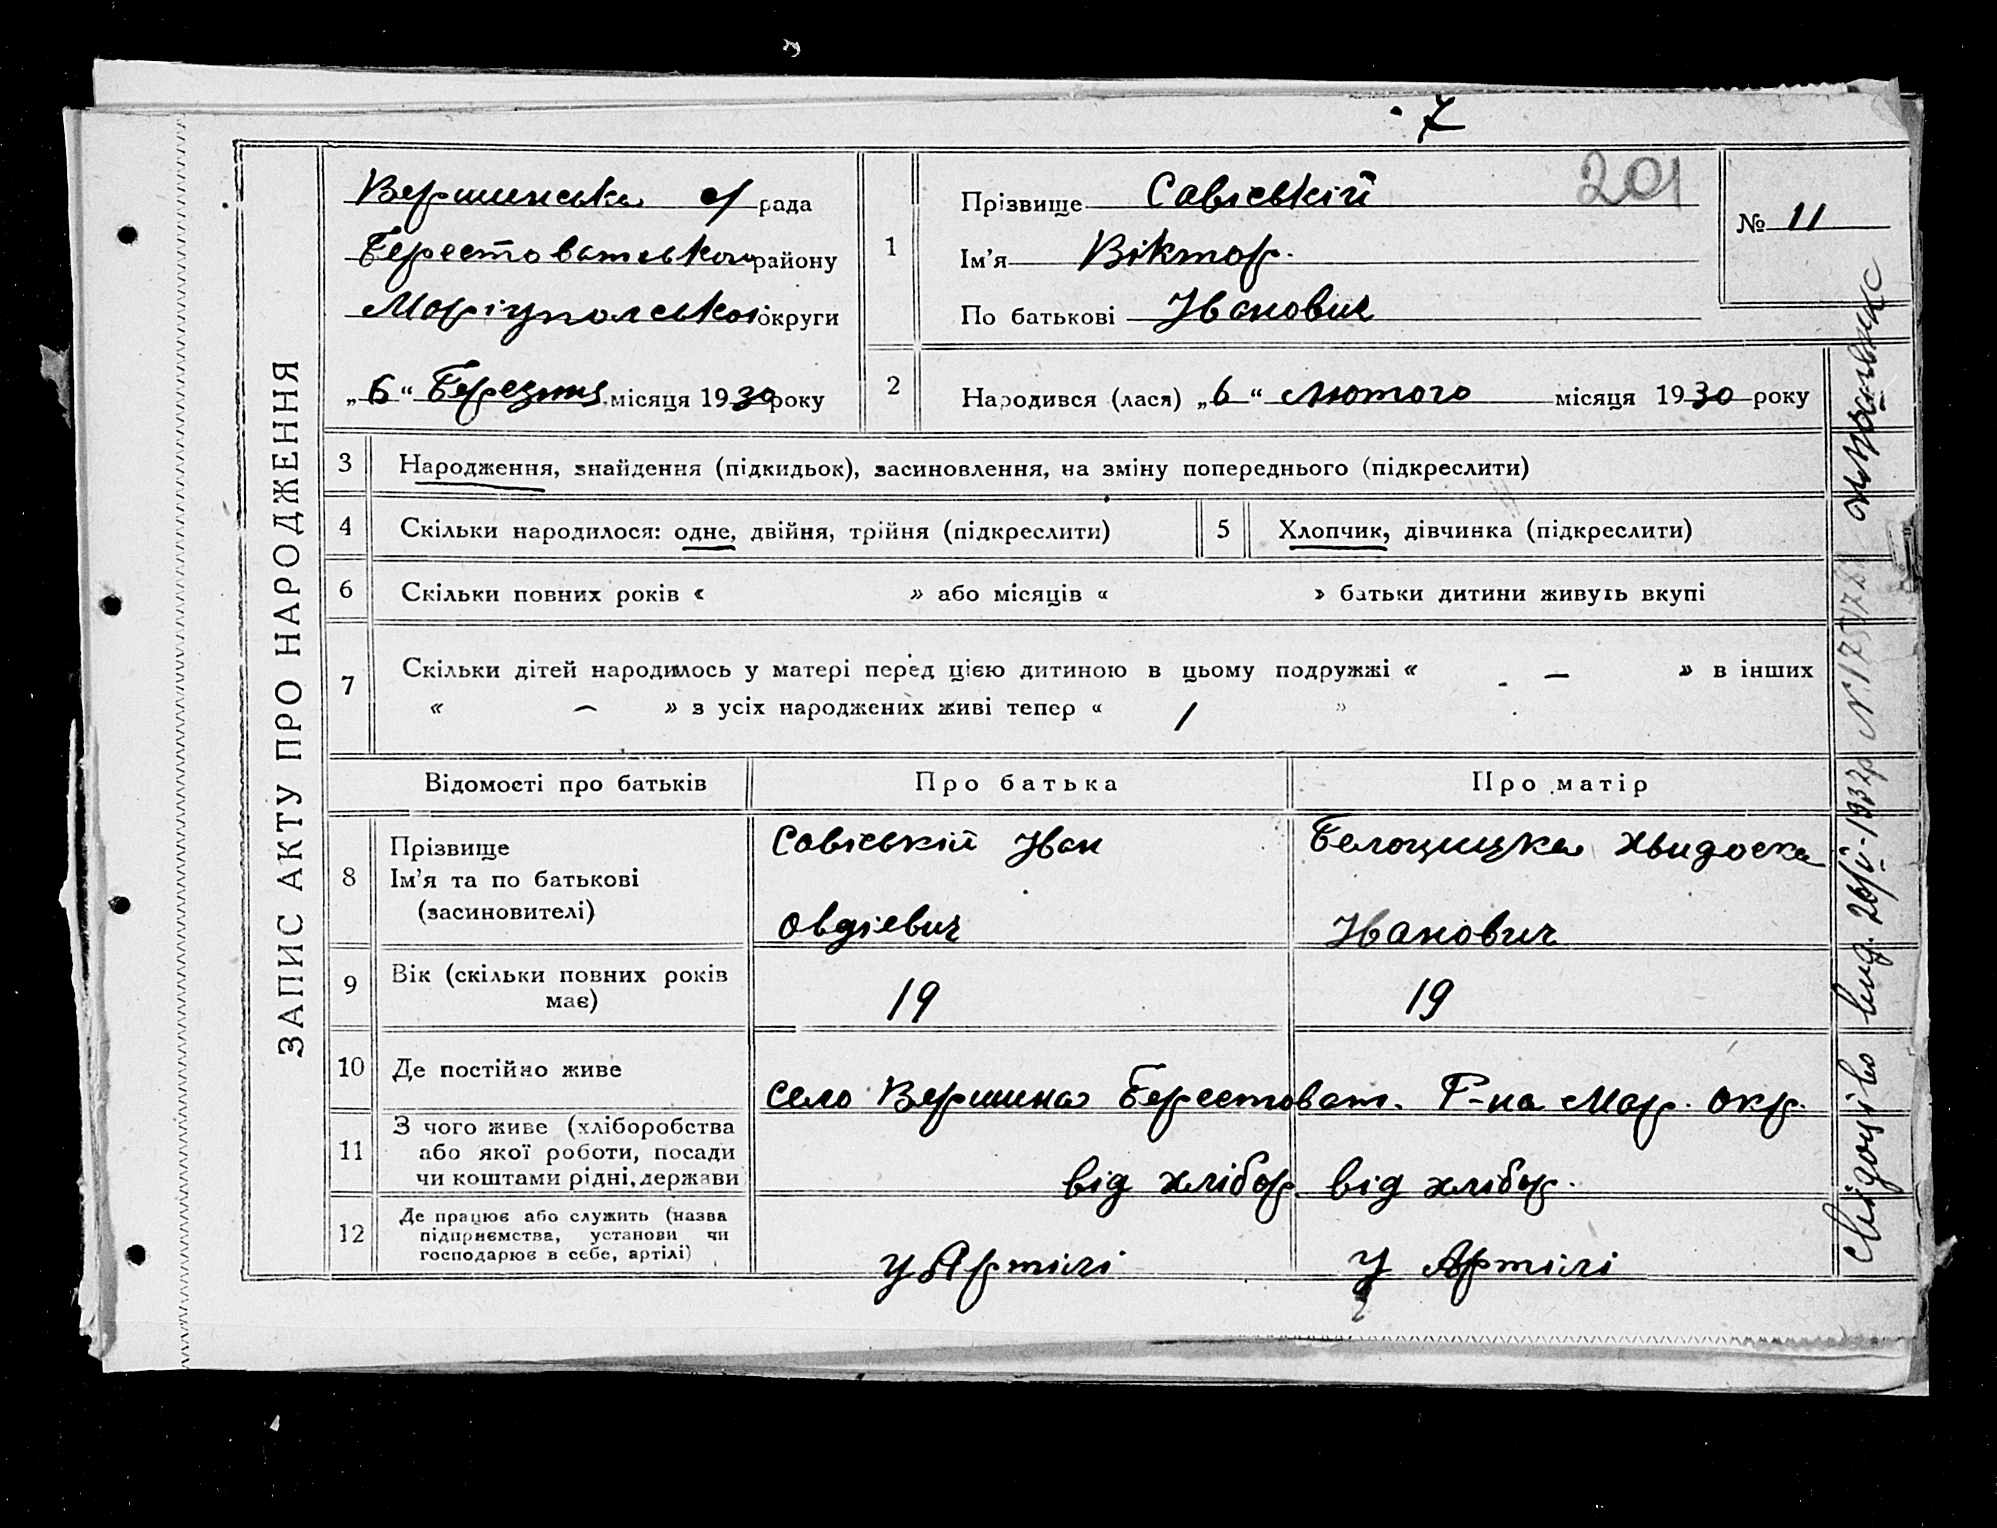 7
201
ЗАПИС АКТУ ПРО НАРОДЖЕННЯ
Вершинська с/рада
Берестоватського району
Маріупольської округи
„6“ Березня місяця 1930 року
1
Прізвище Савіський
Ім'я Віктор.
По батькові Іванович
№ 11
2
Народився (лася) „6“ лютого місяця 1930 року
3 Народження, знайдення (підкидьок), засиновлення, на зміну попереднього (підкреслити)
4 Скільки народилося: одне, двійня, трійня (підкреслити)
5 Хлопчик, дівчинка (підкреслити)
6 Скільки повних років « » або місяців « » батьки дитини живуть вкупі
7 Скільки дітей народилось у матері перед цією дитиною в цьому подружжі « — » в інших
« — » з усіх народжених живі тепер « 1 »
Відомості про батьків Про батька Про матір
8 Прізвище
Ім'я та по батькові
(засиновителі)
Савіський Іван
Овдіевич
Белоцицька Хвидоска
Іванович
9 Вік (скільки повних років
має)
19 19
10 Де постійно живе
село Вершина Берестоват. Р-на Мар. Окр.
11 З чого живе (хліборобства
або якої роботи, посади
чи коштами рідні, держави
від хлібор. від хлібор.
12 Де працює або служить (назва
підприємства, установи чи
господарює в себе, артілі)
у Артілі у Артілі
вид. 26/V-1932р №